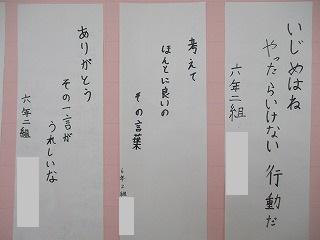 いじめはね
やったらいけない
行動だ
六年二組
考えて
ほんとに良いの
その言葉
6年2組
ありがとう
その一言が
うれしいな
六年二組